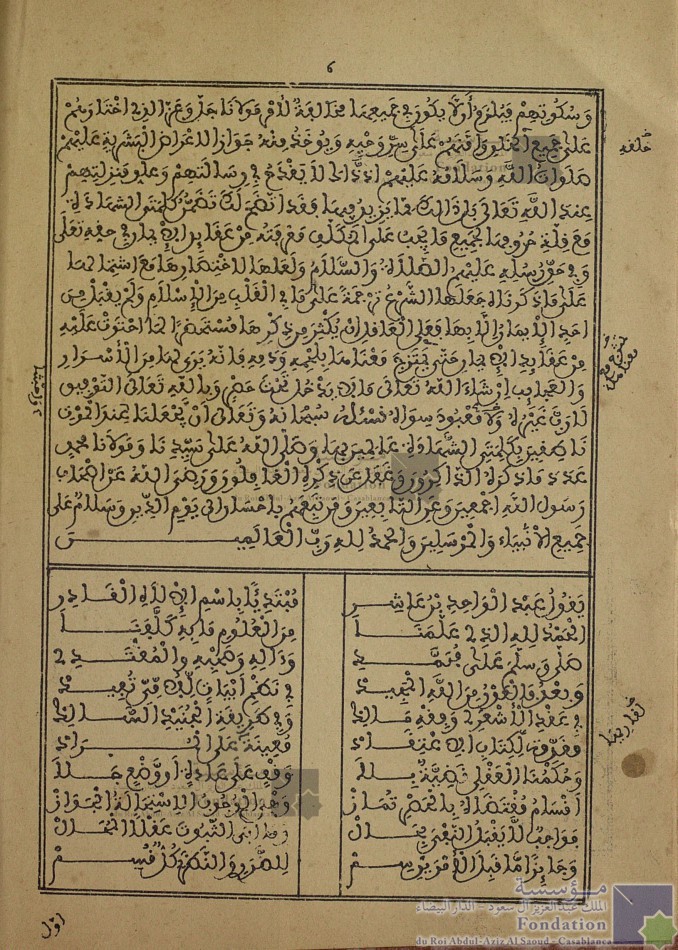 ٦
وسكوتهم فيلزم أن لا يكون في جميعها مخالفة لأمر مولانا جل وعز الذي اختارهم
على جميع الخلق وأمنهم على سر وحيه ويؤخذ منه جواز الاعراض البشرية عليهم
صلوات الله وسلامه عليهم اذ ذاك لا يقدح في رسالتهم وعلو منزلتهم
عند الله تعالى بل ذاك مما يزيد فيها فقد اتضح لك تضمن كلمتي الشهادة
مع قلة حروفها لجميع ما يجب على المكلف معرفته من عقايد الإيمان في حقه تعالى
وفي حق رسله عليهم الصلاة والسلام ولعلها لاختصارها مع اشتمالها
على ما ذكرناه جعلها الشرع ترجمة على ما في القلب من الإسلام ولم يقبل من
احد الإيمان إلا بها فعلى العاقل ان يكثر من ذكرها مستحضرا لما احتوت عليه
من عقايد الإيمان حتى تمتزج مع معناها بلحمه ودمه فإنه يرى لها من الأسرار
والعجايب إن شاء الله تعالى ما لا يدخل تحت حصر وبالله تعالى التوفيق
لا رب غيره ولا معبود سواه نسئله سبحانه وتعالى أن يجعلنا عند الموت
ناطقين بكلمتي الشهادة عالمين بها وصلى الله على سيدنا ومولانا محمد
عدد ما ذكره الذاكرون وغفل عن ذكره الغافلون ورضي الله عن أصحاب
رسول الله اجمعين وعن التابعين ومن تبعهم بإحسان الى يوم الدين وسلام على
جميع الأنبياء والمرسلين والحمد لله رب العالمين
خلقه
يقول عبد الواحد بن عاشر
مبتدئا باسم الإلاه القادر
الحمد لله الذي علمنا
من العلوم ما به كلفنا
صلى وسلم على محمد
وءاله وصحبه والمقتدي
وبعد فالعون من الله المجيد
في نظم أبيات للأمي تفيد
في عقد الأشعري وفقه مالك
وفي طريقة الجنيد السالك
مقدمة لكتاب الاعتقاد
معينة على المراد
وحكمنا العقلي قضية بلا
وقف على عادة أو وضع جلا
أقسام مقتضاه بالحصر تماز
وهي الوجوب الاستحالة الجواز
فواجب لا يقبل النفي بحال
وما أبى الثبوت عقلا المحال
وجايزا ما قبل الأمرين سم
للضروري والنظري كل قسم
اول
مؤسسة
الملك عبد العزيز آل سعود - الدار البيضاء
Fondation
du Roi Abdul-Aziz Al Saoud - Casablanca